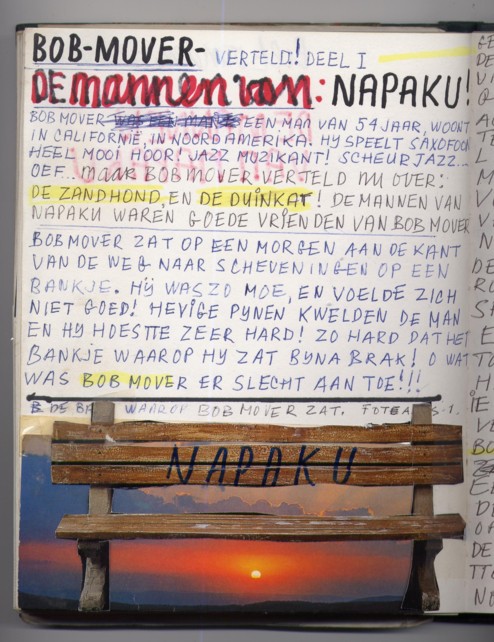 BOB-MOVER- VERTELD! DEEL I
DE mannen van: NAPAKU!
BOB MOVER EEN MAN VAN 54 JAAR, WOONT
IN CALIFORNIË, IN NOORD AMERIKA. HY SPEELT SAXOFOON
HEEL MOOI HOOR JAZZ MUZIKANT! SCHEUR JAZZ...
OEF... maar BOB MOVER VERTELD NU OVER:
DE ZANDHOND, EN DE DUINKAT! DE MANNEN VAN
NAPAKU WAREN GOEDE VRIENDEN VAN BOB MOVER
BOB MOVER ZAT OP EEN MORGEN AAN DE KANT
VAN DE WEG NAAR SCHEVENINGEN OP EEN
BANKJE. HIJ WAS ZO MOE, EN VOELDE ZICH
NIET GOED! HEVIGE PYNEN KWELDEN DE MAN
EN HY HOESTTE ZEER HARD! ZO HARD DAT HET
BANKJE WAAROP HY ZAT BYNA BRAK! O WAT
WAS BOB MOVER ER SLECHT AAN TOE!!!
WAAROP BOB MOVER ZAT.
NAPAKU